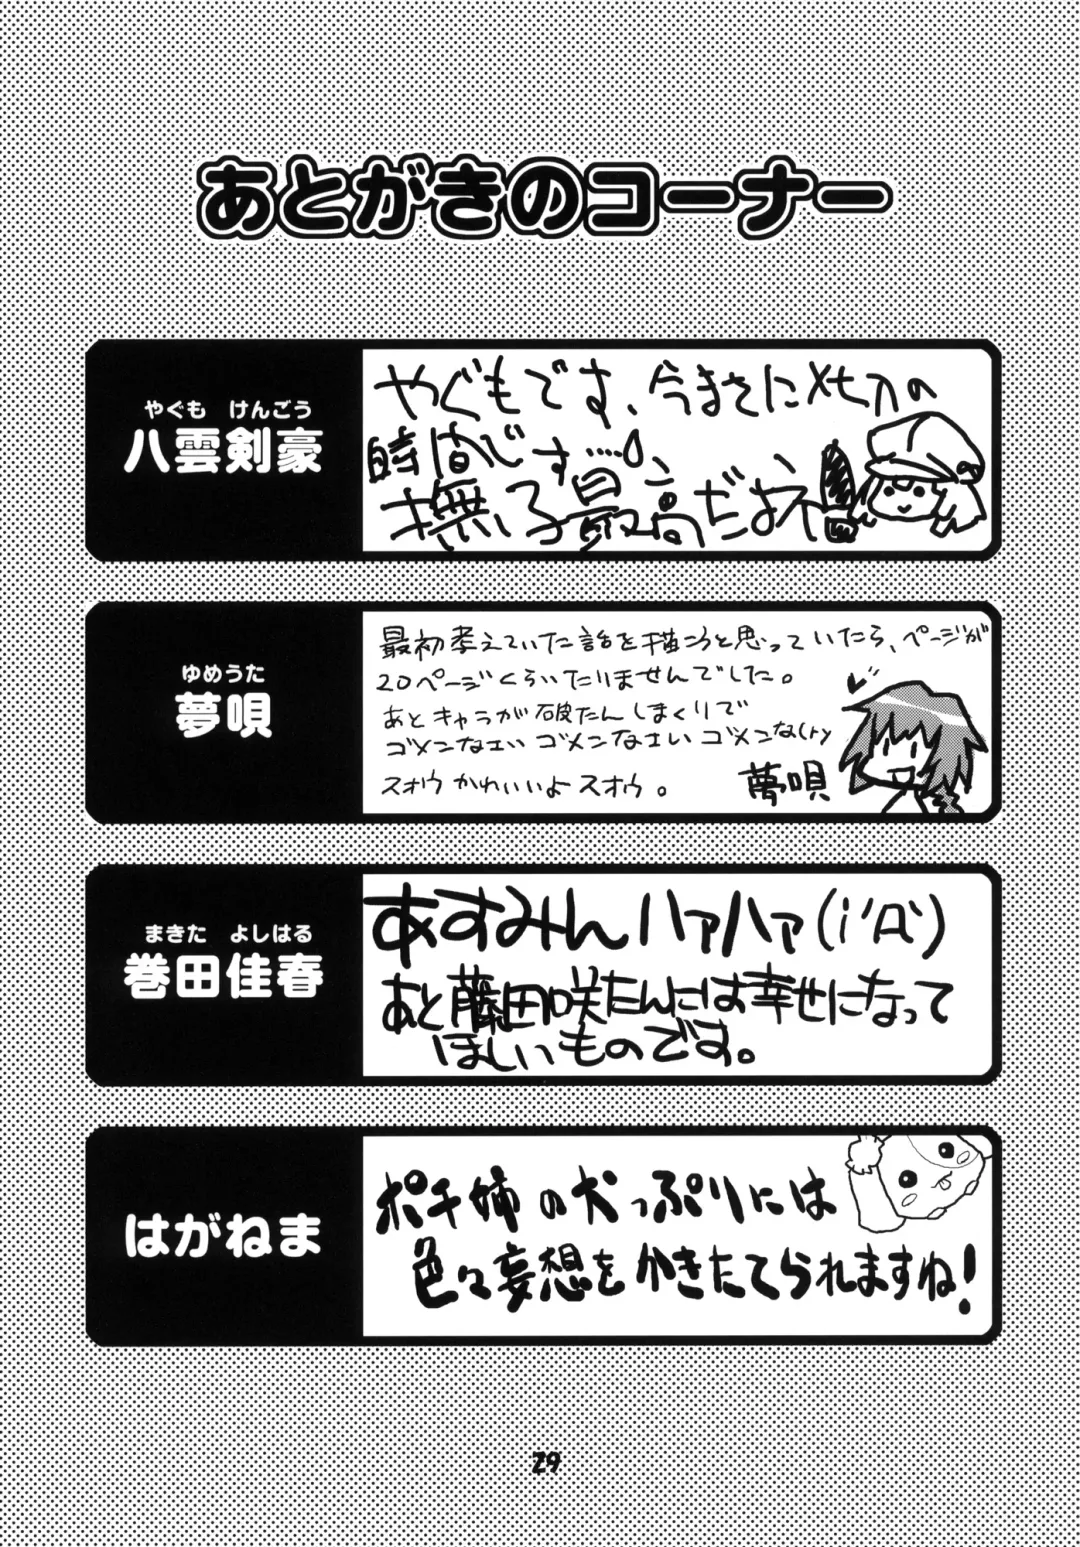 あとがきのコーナー
やぐも けんごう
八雲剣豪
やぐもです、今まさに〆切の
時間です…。
撫子最高だよね
ゆめうた
夢唄
最初考えていた話を描こうと思っていたら、ページが
20ページくらいたりませんでした。
あとキャラが破たんしまくりで
ゴメンなさい ゴメンなさい ゴメンな(ry
スオウかわいいよスオウ。
夢唄
まきた よしはる
巻田佳春
あすみんハァハァ(;´Д`)
あと藤田咲たんには幸せになって
ほしいものです。
はがねま
ポチ姉の犬っぷりには
色々妄想をかきたてられますね!
29